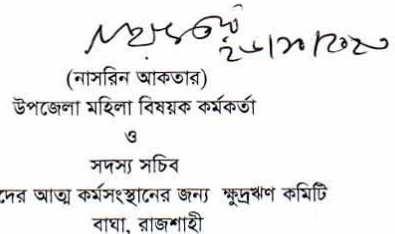 (নাসরিন আকতার)
উপজেলা মহিলা বিষয়ক কর্মকর্তা
ও
সদস্য সচিব
দের আত্ম কর্মসংস্থানের জন্য ক্ষুদ্রঋণ কমিটি
বাঘা, রাজশাহী